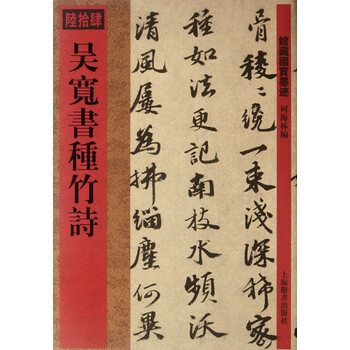 陸拾肆
吴寬書種竹詩
館藏國寶墨迹
何海林編
上海辭書出版社
骨稜〻繞一束淺深稀密
種如法更記南枝水頻沃
清風屢為拂緇塵何異